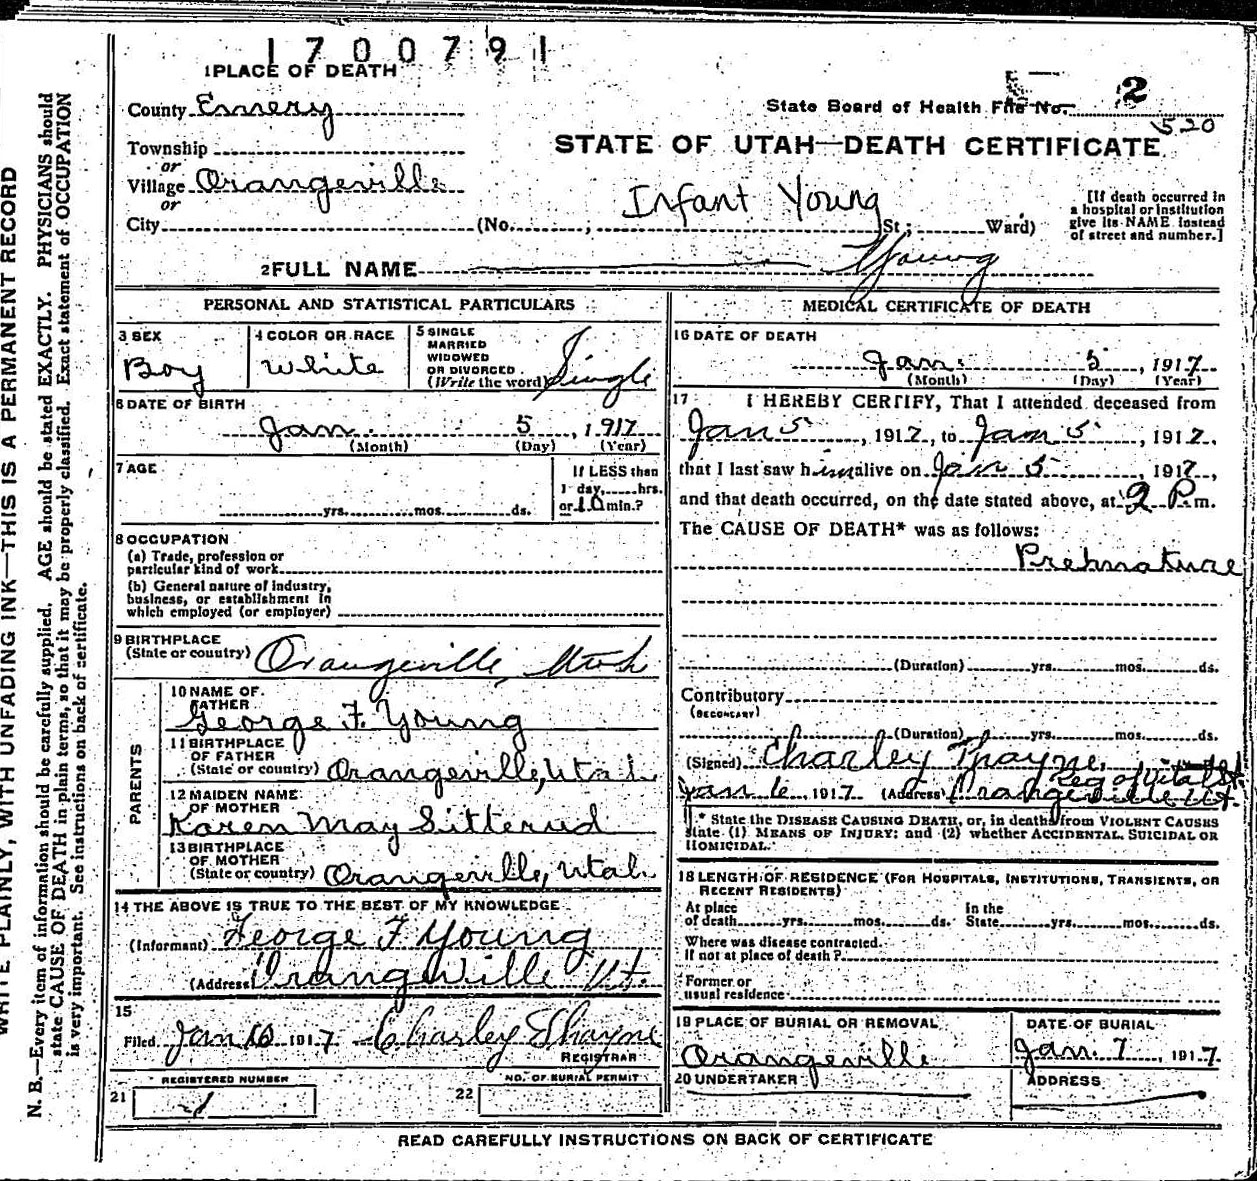 1700791
1 PLACE OF DEATH
County Emery
State Board of Health File No. 2
520
Township
STATE OF UTAH—DEATH CERTIFICATE
or
Village Orangeville
or
Infant Young
City (No. ; St.; Ward)
[If death occurred in
a hospital or institution
give its NAME instead
of street and number.]
2 FULL NAME Young
PERSONAL AND STATISTICAL PARTICULARS
3 SEX
Boy
4 COLOR OR RACE
White
5 SINGLE
MARRIED
WIDOWED
OR DIVORCED
(Write the word) Single
6 DATE OF BIRTH
Jan. 5, 1917
(Month) (Day) (Year)
7 AGE
yrs. mos. ds.
If LESS than
1 day, hrs.
or 10 min.?
8 OCCUPATION
(a) Trade, profession or
particular kind of work
(b) General nature of industry,
business, or establishment in
which employed (or employer)
9 BIRTHPLACE
(State or country) Orangeville, Utah
PARENTS
10 NAME OF
FATHER
George F. Young
11 BIRTHPLACE
OF FATHER
(State or country) Orangeville, Utah
12 MAIDEN NAME
OF MOTHER
Karen May Sitterud
13 BIRTHPLACE
OF MOTHER
(State or country) Orangeville, Utah
14 THE ABOVE IS TRUE TO THE BEST OF MY KNOWLEDGE
(Informant) George F Young
(Address) Orangeville Ut.
15
Filed Jan 10 1917 Charley Thayne
REGISTRAR
REGISTERED NUMBER
21 1
NO. OF BURIAL PERMIT
22
MEDICAL CERTIFICATE OF DEATH
16 DATE OF DEATH
Jan. 5, 1917
(Month) (Day) (Year)
17 I HEREBY CERTIFY, That I attended deceased from
Jan 5, 1917, to Jan 5, 1917,
that I last saw him alive on Jan 5, 1917,
and that death occurred, on the date stated above, at 2 P.m.
The CAUSE OF DEATH* was as follows:
Prehmature
(Duration) yrs. mos. ds.
Contributory
(SECONDARY)
(Duration) yrs. mos. ds.
(Signed) Charley Thayne
Reg of Vital St.
Jan 6, 1917 (Address) Orangeville Ut.
* State the DISEASE CAUSING DEATH, or, in deaths from VIOLENT CAUSES
state (1) MEANS OF INJURY; and (2) whether ACCIDENTAL, SUICIDAL OR
HOMICIDAL.
18 LENGTH OF RESIDENCE (FOR HOSPITALS, INSTITUTIONS, TRANSIENTS, OR
RECENT RESIDENTS)
At place
of death yrs. mos. ds.
In the
State yrs. mos. ds.
Where was disease contracted.
If not at place of death?
Former or
usual residence
19 PLACE OF BURIAL OR REMOVAL
Orangeville
DATE OF BURIAL
Jan. 7, 1917
20 UNDERTAKER
ADDRESS
READ CAREFULLY INSTRUCTIONS ON BACK OF CERTIFICATE
WRITE PLAINLY, WITH UNFADING INK—THIS IS A PERMANENT RECORD
N. B.—Every item of information should be carefully supplied. AGE should be stated EXACTLY. PHYSICIANS should
state CAUSE OF DEATH in plain terms, so that it may be properly classified. Exact statement of OCCUPATION
is very important. See instructions on back of certificate.